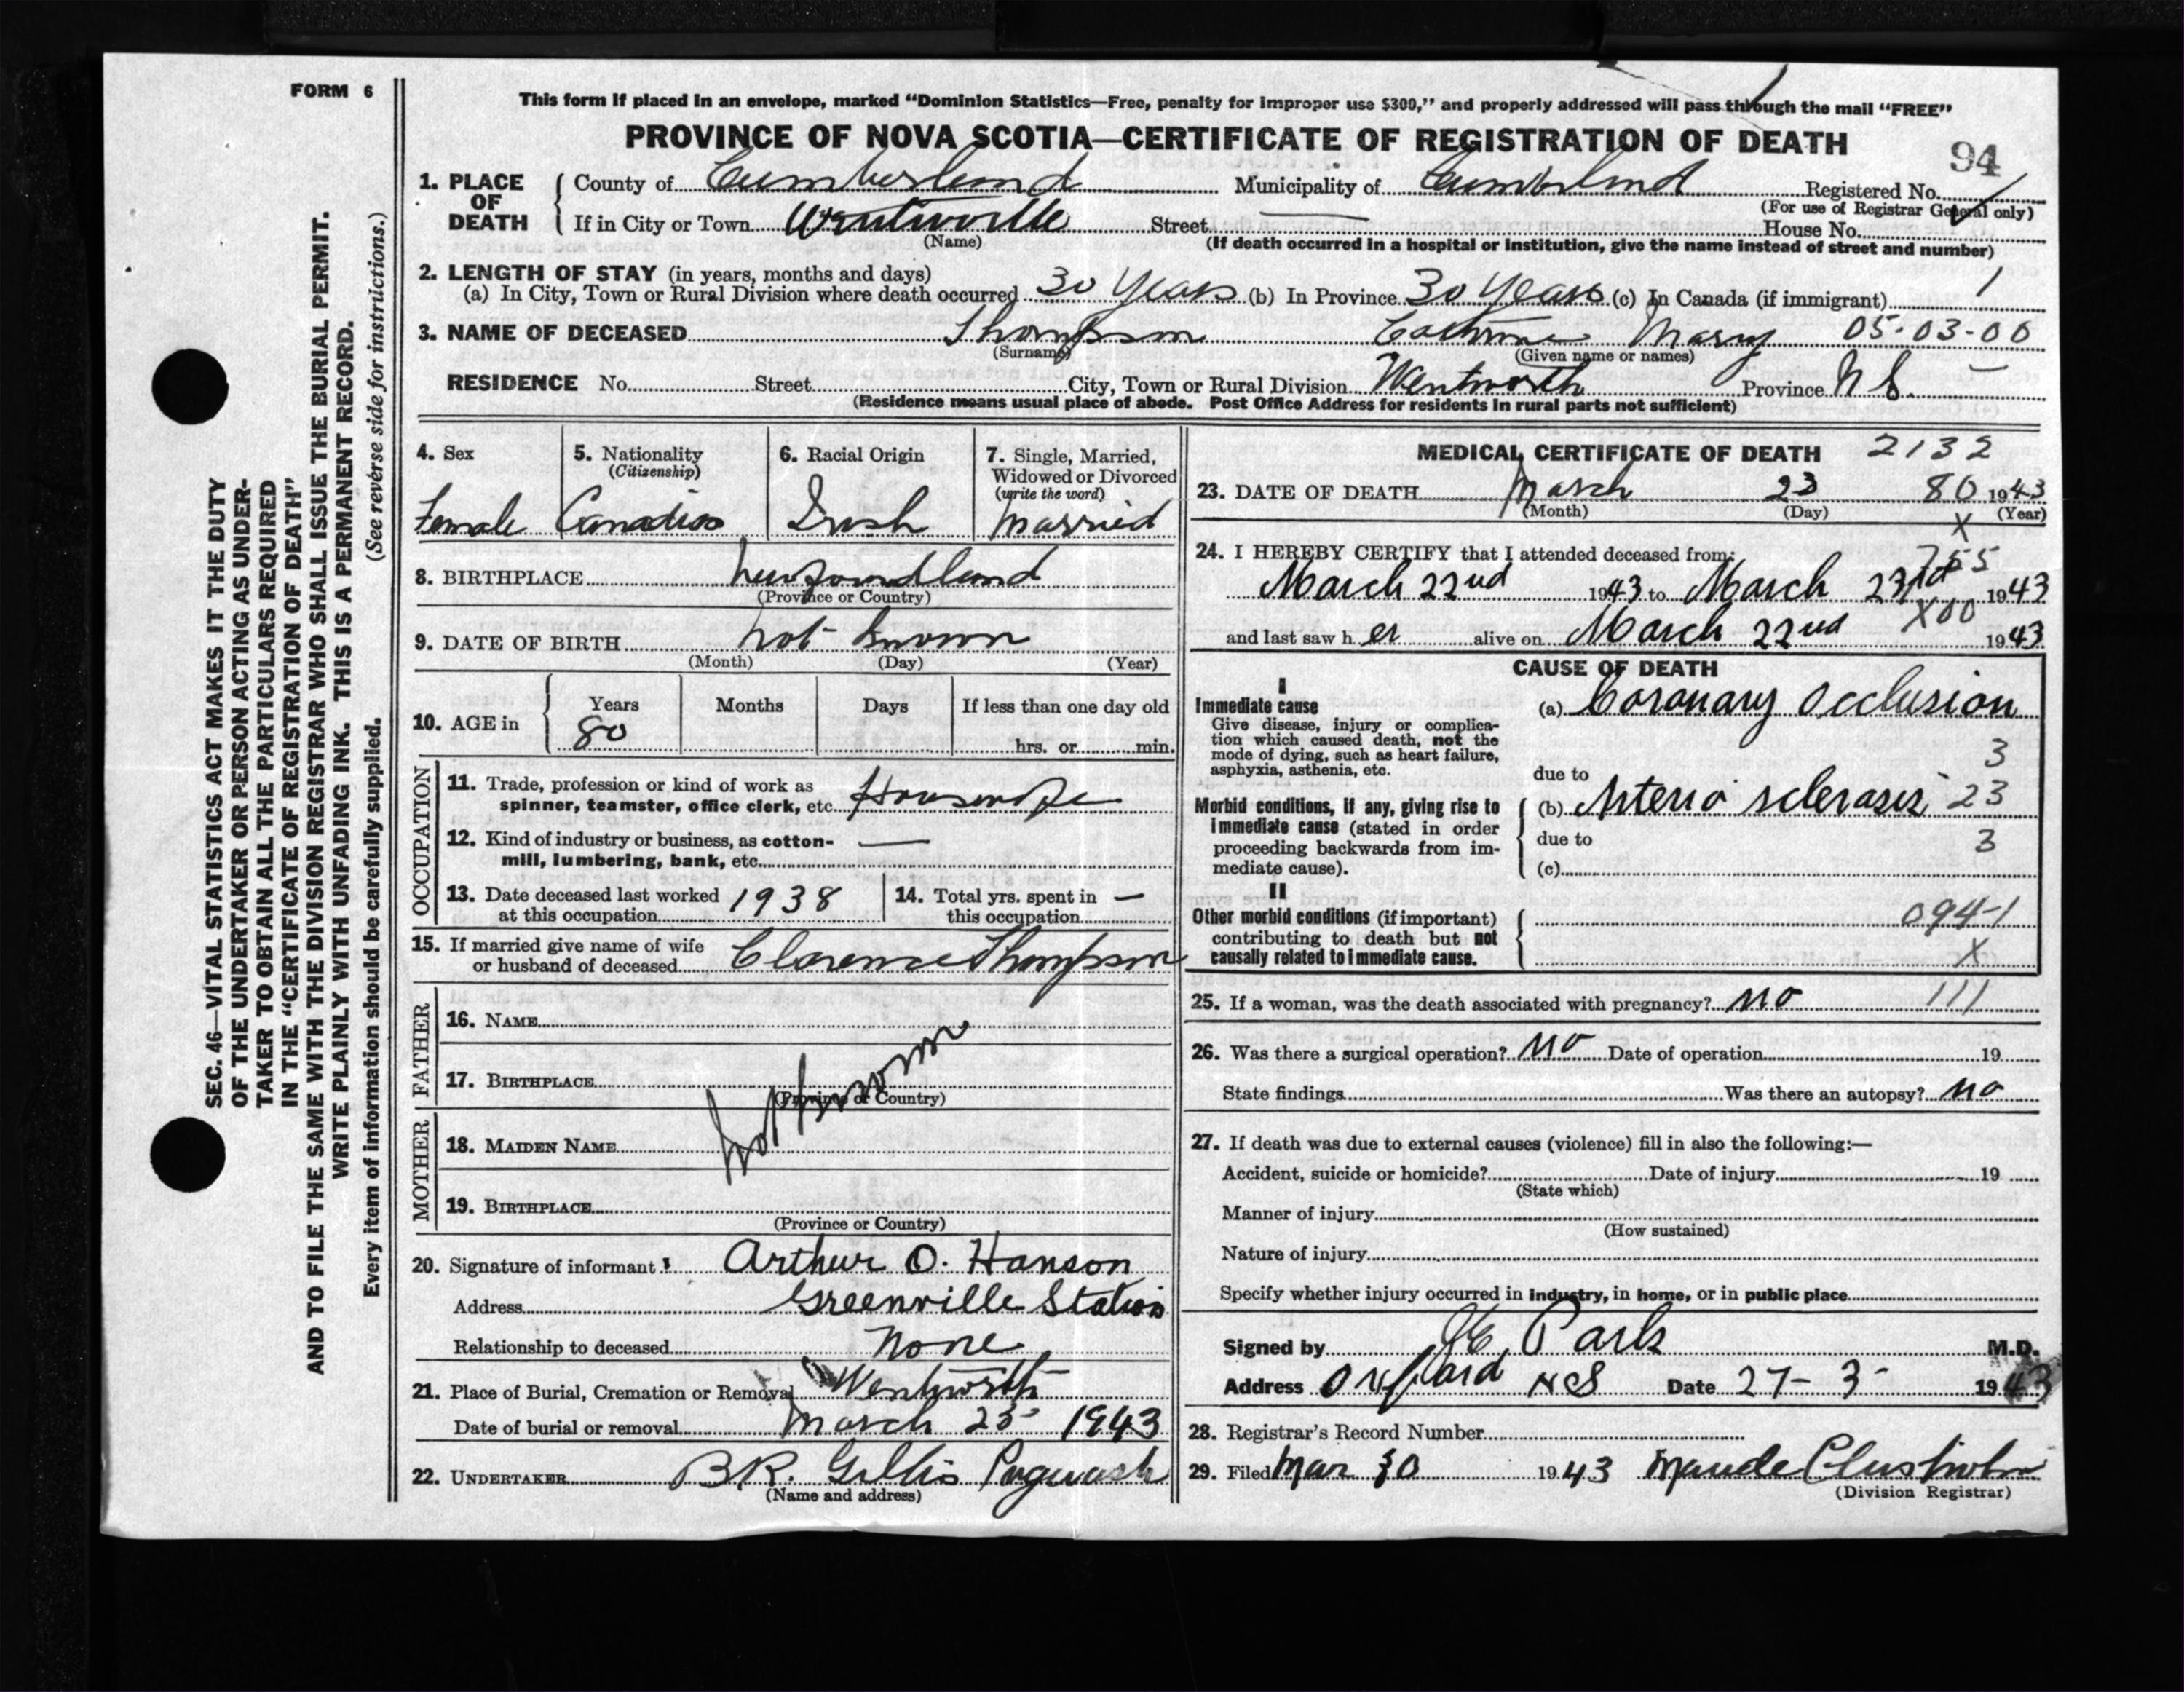 FORM 6
This form if placed in an envelope, marked “Dominion Statistics—Free, penalty for improper use $300,” and properly addressed will pass through the mail “FREE”
PROVINCE OF NOVA SCOTIA—CERTIFICATE OF REGISTRATION OF DEATH
94
1. PLACE OF DEATH
County of Cumberland Municipality of Cumberland Registered No.
(For use of Registrar General only)
If in City or Town Wentworth Street House No.
(Name) (If death occurred in a hospital or institution, give the name instead of street and number)
2. LENGTH OF STAY (in years, months and days)
(a) In City, Town or Rural Division where death occurred 30 Years (b) In Province 30 Years (c) In Canada (if immigrant) 1
3. NAME OF DECEASED Thompson Cathrine Mary 05-03-00
(Surname) (Given name or names)
RESIDENCE No. Street City, Town or Rural Division Wentworth Province N S.
(Residence means usual place of abode. Post Office Address for residents in rural parts not sufficient)
4. Sex
Female
5. Nationality
(Citizenship)
Canadian
6. Racial Origin
Irish
7. Single, Married,
Widowed or Divorced
(write the word)
Married
8. BIRTHPLACE Newfoundland
(Province or Country)
9. DATE OF BIRTH not known
(Month) (Day) (Year)
10. AGE in
Years Months Days If less than one day old
80 hrs. or min.
OCCUPATION
11. Trade, profession or kind of work as
spinner, teamster, office clerk, etc. Housewife
12. Kind of industry or business, as cotton-
mill, lumbering, bank, etc. —
13. Date deceased last worked
at this occupation 1938
14. Total yrs. spent in
this occupation —
15. If married give name of wife
or husband of deceased Clarence Thompson
FATHER
16. NAME
17. BIRTHPLACE
(Province or Country)
not known
MOTHER
18. MAIDEN NAME
19. BIRTHPLACE
(Province or Country)
20. Signature of informant Arthur O. Hanson
Address Greenville Station
Relationship to deceased None
21. Place of Burial, Cremation or Removal Wentworth
Date of burial or removal March 25 1943
22. UNDERTAKER B R. Gillis Pugwash
(Name and address)
MEDICAL CERTIFICATE OF DEATH 2132
23. DATE OF DEATH March 23 80 1943
(Month) (Day) (Year)
X
24. I HEREBY CERTIFY that I attended deceased from:
755
March 22nd 1943 to March 23rd 1943
X00
and last saw h er alive on March 22nd 1943
CAUSE OF DEATH
I
Immediate cause
Give disease, injury or complica-
tion which caused death, not the
mode of dying, such as heart failure,
asphyxia, asthenia, etc.
(a) Coronary Occlusion
3
due to
Morbid conditions, if any, giving rise to
immediate cause (stated in order
proceeding backwards from im-
mediate cause).
(b) Arterio sclerosis 23
due to 3
(c)
II
Other morbid conditions (if important)
contributing to death but not
causally related to immediate cause.
094-1
X
25. If a woman, was the death associated with pregnancy? no 111
26. Was there a surgical operation? no Date of operation 19
State findings Was there an autopsy? no
27. If death was due to external causes (violence) fill in also the following:—
Accident, suicide or homicide? Date of injury 19
(State which)
Manner of injury
(How sustained)
Nature of injury
Specify whether injury occurred in industry, in home, or in public place
Signed by Park M.D.
Address Oxford NS Date 27-3- 1943
28. Registrar's Record Number
29. Filed Mar 30 1943 Maude Chisholm
(Division Registrar)
SEC. 46—VITAL STATISTICS ACT MAKES IT THE DUTY
OF THE UNDERTAKER OR PERSON ACTING AS UNDER-
TAKER TO OBTAIN ALL THE PARTICULARS REQUIRED
IN THE “CERTIFICATE OF REGISTRATION OF DEATH”
AND TO FILE THE SAME WITH THE DIVISION REGISTRAR WHO SHALL ISSUE THE BURIAL PERMIT.
WRITE PLAINLY WITH UNFADING INK. THIS IS A PERMANENT RECORD.
Every item of information should be carefully supplied. (See reverse side for instructions.)